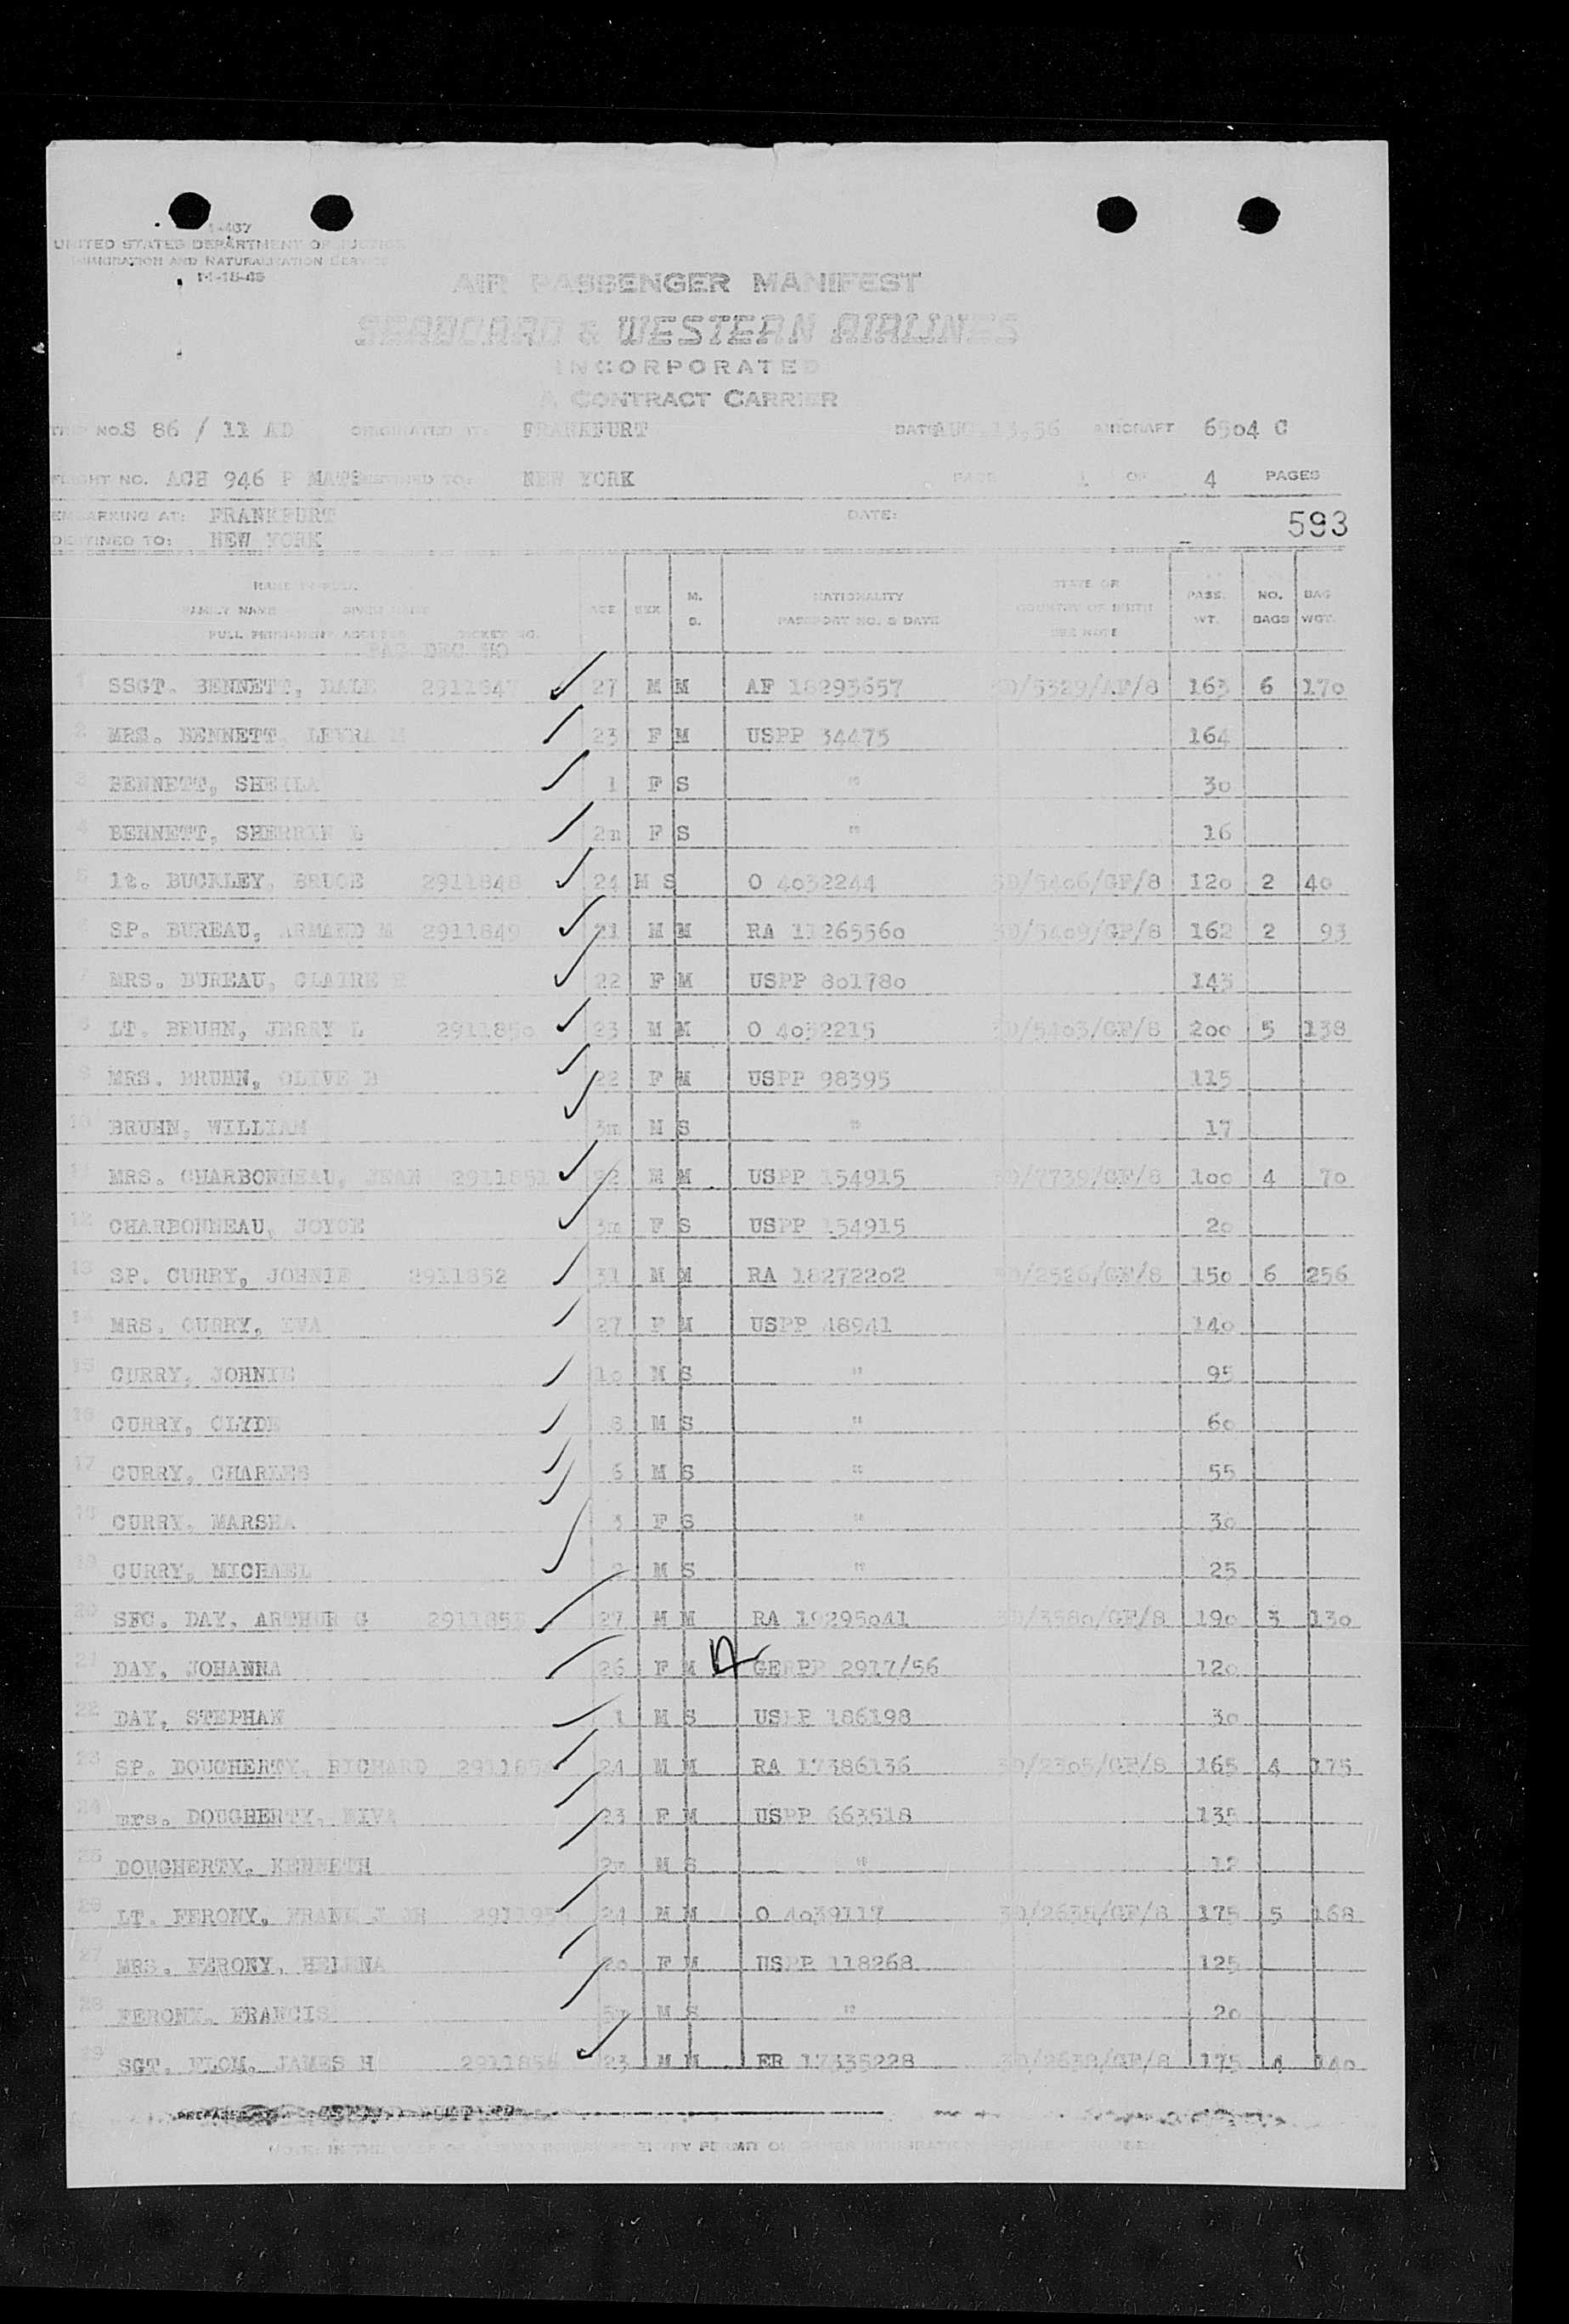 I-407
UNITED STATES DEPARTMENT OF JUSTICE
IMMIGRATION AND NATURALIZATION SERVICE
11-15-45
AIR PASSENGER MANIFEST
SEABOARD & WESTERN AIRLINES
INCORPORATED
A CONTRACT CARRIER
TRIP NO. S 86 / 11 AD ORIGINATED AT: FRANKFURT DATE AUG. 13, 56 AIRCRAFT 6504 C
FLIGHT NO. ACH 946 P MATS DESTINED TO: NEW YORK PAGE 1 OF 4 PAGES
EMBARKING AT: FRANKFURT DATE:
593
DESTINED TO: NEW YORK
NAME IN FULL STATE OR
FAMILY NAME GIVEN NAME AGE SEX M. S. NATIONALITY COUNTRY OF BIRTH PASS. WT. NO. BAGS BAG WGT.
FULL PERMANENT ADDRESS TICKET NO. PASSPORT NO. & DATE SEE NOTE
BAG DEC NO
1 SSGT. BENNETT, DALE 2911847 27 M M AF 18293657 3D/5329/AF/8 163 6 170
2 MRS. BENNETT 23 F M USPP 34475 164
3 BENNETT, SHEILA 1 F S " 30
4 BENNETT, L 2m F S " 16
5 lt. BUCKLEY, BRUCE 2911848 24 M S O 4032244 3D/5406/GF/8 120 2 40
6 SP. BUREAU, ARMAND M 2911849 21 M M RA 11265560 3D/5409/GF/8 162 2 93
7 MRS. BUREAU, CLAIRE 22 F M USPP 801780 143
8 LT. BRUHN, JERRY L 2911850 23 M M O 4032215 3D/5403/GF/8 200 5 138
9 MRS. BRUHN, OLIVE 22 F M USPP 98395 115
10 BRUHN, WILLIAM 3m M S " 17
11 MRS. CHARBONNEAU, JEAN 2911851 22 M M USPP 154915 3D/7739/GF/8 100 4 70
12 CHARBONNEAU, JOYCE 3m F S USPP 154915 20
13 SP. CURRY, JOHNIE 2911852 31 M M RA 18272202 3D/2526/GF/8 150 6 256
14 MRS. CURRY, EVA 27 F M USPP 48941 140
15 CURRY, JOHNIE 10 M S " 95
16 CURRY, CLYDE 8 M S " 60
17 CURRY, CHARLES 6 M S " 55
18 CURRY, MARSHA 3 F S " 30
19 CURRY, MICHAEL 2 M S " 25
20 SFC. DAY, ARTHUR G 2911853 27 M M RA 19295041 3D/3380/GF/8 190 3 130
21 DAY, JOHANNA 26 F M GERPP 2917/56 120
22 DAY, STEPHAN 1 M S USPP 186198 30
23 SP. DOUGHERTY, RICHARD 24 M M RA 17386136 3D/2305/GF/8 165 4 175
24 mrs. DOUGHERTY, 23 F M USPP 663518 135
25 DOUGHERTY, KENNETH 2m M S " 12
26 LT. FERONY, FRANK J JR 24 M M O 4039117 175 5 168
27 MRS. FERONY, HELENA 20 F M USPP 118268 125
28 FERONY, FRANCIS 5m M S " 20
29 SGT. FLOM, JAMES H 2911856 23 M M ER 17335228 3D/2638/GF/8 175 4 140
PREPARED